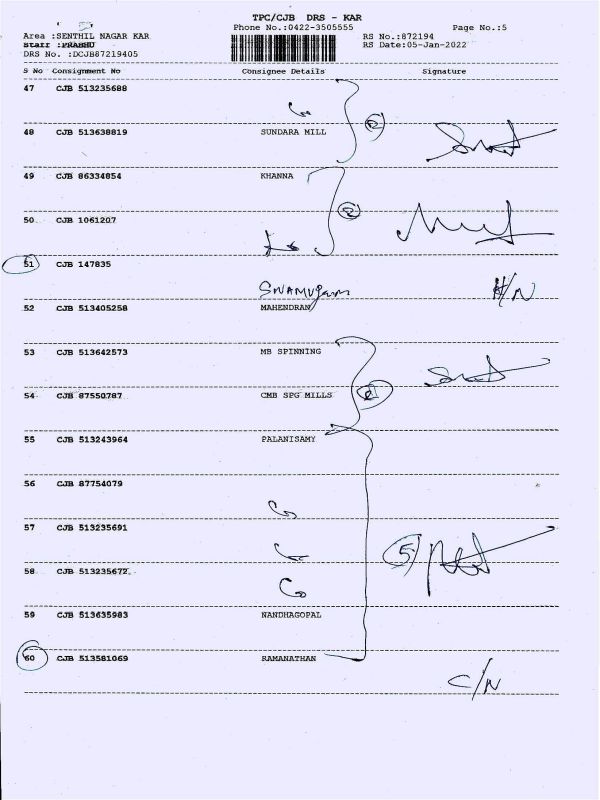 TPC/CJB DRS - KAR
Phone No.:0422-3505555
Page No.:5
Area :SENTHIL NAGAR KAR
RS No.:872194
Staff :PRABHU
RS Date:05-Jan-2022
DRS No. :DCJB87219405
S No Consignment No Consignee Details Signature
47 CJB 513235688
(2)
48 CJB 513638819 SUNDARA MILL
49 CJB 86334854 KHANNA
(2)
50 CJB 1061207
51 CJB 147835
H/N
52 CJB 513405258 MAHENDRAN
53 CJB 513642573 MB SPINNING
54 CJB 87550787 CMB SPG MILLS
55 CJB 513243964 PALANISAMY
56 CJB 87754079
57 CJB 513235691
(5)
58 CJB 513235672
59 CJB 513635983 NANDHAGOPAL
60 CJB 513581069 RAMANATHAN
C/N